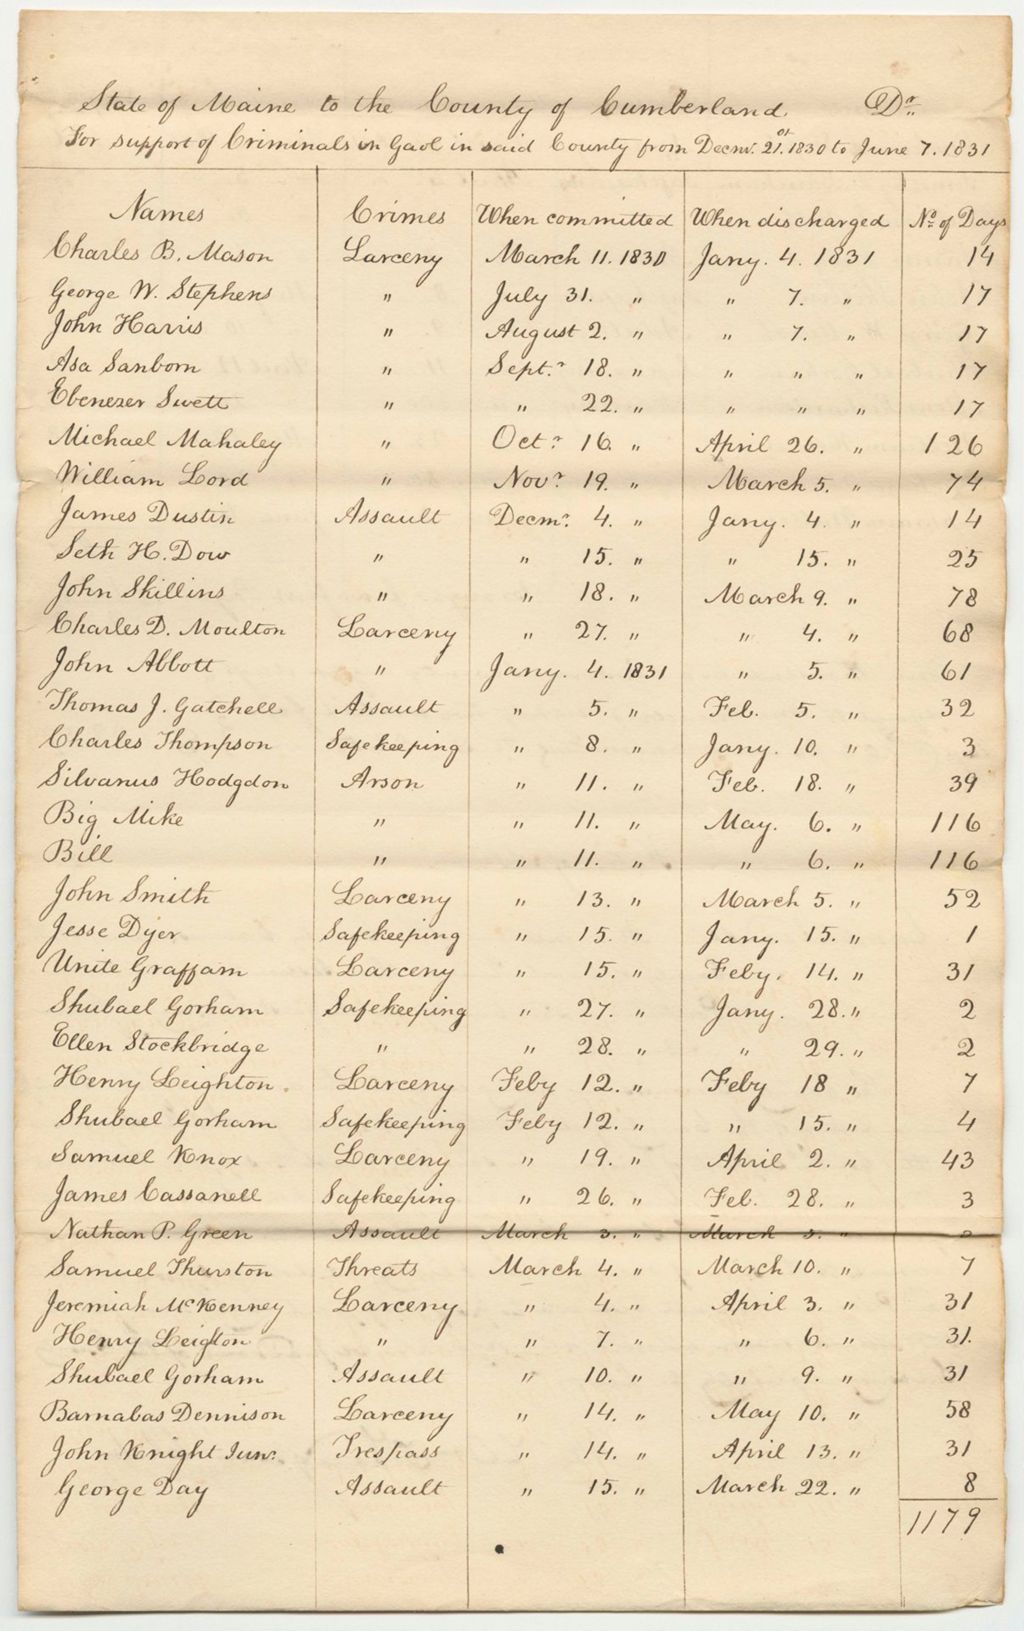 State of Maine to the County of Cumberland Dr.
For support of Criminals in Gaol in said County from Decmr. 21st 1830 to June 7. 1831
Names Crimes When committed When discharged No. of Days
Charles B. Mason Larceny March 11. 1830 Jany. 4. 1831 14
George W. Stephens " July 31. " " 7. " 17
John Harris " August 2. " " 7. " 17
Asa Sanborn " Septr. 18. " " " " 17
Ebenezer Swett " " 22. " " " " 17
Michael Mahaley " Octr. 16. " April 26. " 126
William Lord " Novr. 19. " March 5. " 74
James Dustin Assault Decmr. 4. " Jany. 4. " 14
Seth H. Dow " " 15. " " 15. " 25
John Skillins " " 18. " March 9. " 78
Charles D. Moulton Larceny " 27. " " 4. " 68
John Abbott " Jany. 4. 1831 " 5. " 61
Thomas J. Gatchell Assault " 5. " Feb. 5. " 32
Charles Thompson Safekeeping " 8. " Jany. 10. " 3
Silvanus Hodgdon Arson " 11. " Feb. 18. " 39
Big Mike " " 11. " May. 6. " 116
Bill " " 11. " " 6. " 116
John Smith Larceny " 13. " March 5. " 52
Jesse Dyer Safekeeping " 15. " Jany. 15. " 1
Unite Graffam Larceny " 15. " Feby. 14. " 31
Shubael Gorham Safekeeping " 27. " Jany. 28. " 2
Ellen Stockbridge " " 28. " " 29. " 2
Henry Leighton Larceny Feby 12. " Feby 18 " 7
Shubael Gorham Safekeeping Feby 12. " " 15. " 4
Samuel Knox Larceny " 19. " April 2. " 43
James Cassanell Safekeeping " 26. " Feb. 28. " 3
Nathan P. Green Assault March 3. " March "
Samuel Thurston Threats March 4. " March 10. " 7
Jeremiah McKenney Larceny " 4. " April 3. " 31
Henry Leighton " " 7. " " 6. " 31.
Shubael Gorham Assault " 10. " " 9. " 31
Barnabas Dennison Larceny " 14. " May 10. " 58
John Knight Junr. Trespass " 14. " April 13. " 31
George Day Assault " 15. " March 22. " 8
1179